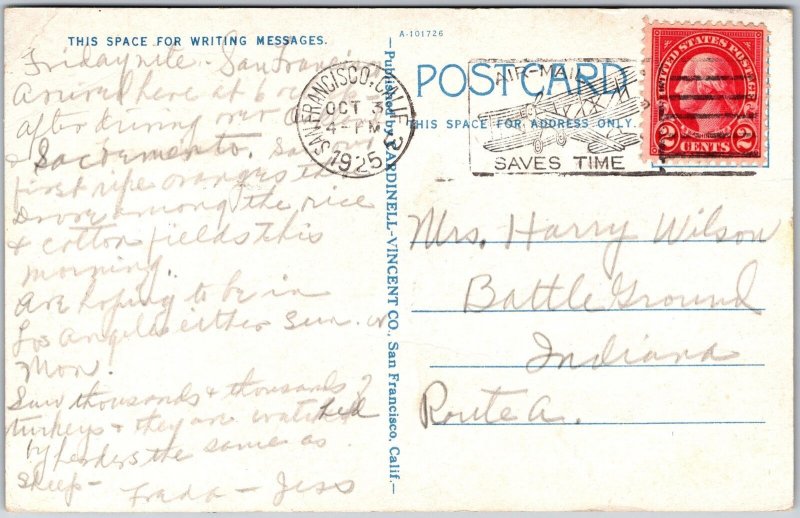 THIS SPACE FOR WRITING MESSAGES.
A-101726
POSTCARD
THIS SPACE FOR ADDRESS ONLY.
SAN FRANCISCO, CALIF.
OCT 3
4-PM
1925
AIR-MAIL
SAVES TIME
UNITED STATES POSTAGE
2 CENTS 2
Friday nite - San Francisco
Arrived here at 6 o'clock
after driving over
& Sacremento. Saw our
first ripe oranges there
Drove among the rice
& cotton fields this
morning.
Are hoping to be in
Los Angeles either Sun. or
Mon.
Saw thousands & thousands of
turkeys & they are watched
by herders the same as
sheep -
Frada - Jess
Published by PARDINELL-VINCENT CO., San Francisco, Calif.
Mrs. Harry Wilson
Battle Ground
Indiana
Route A.